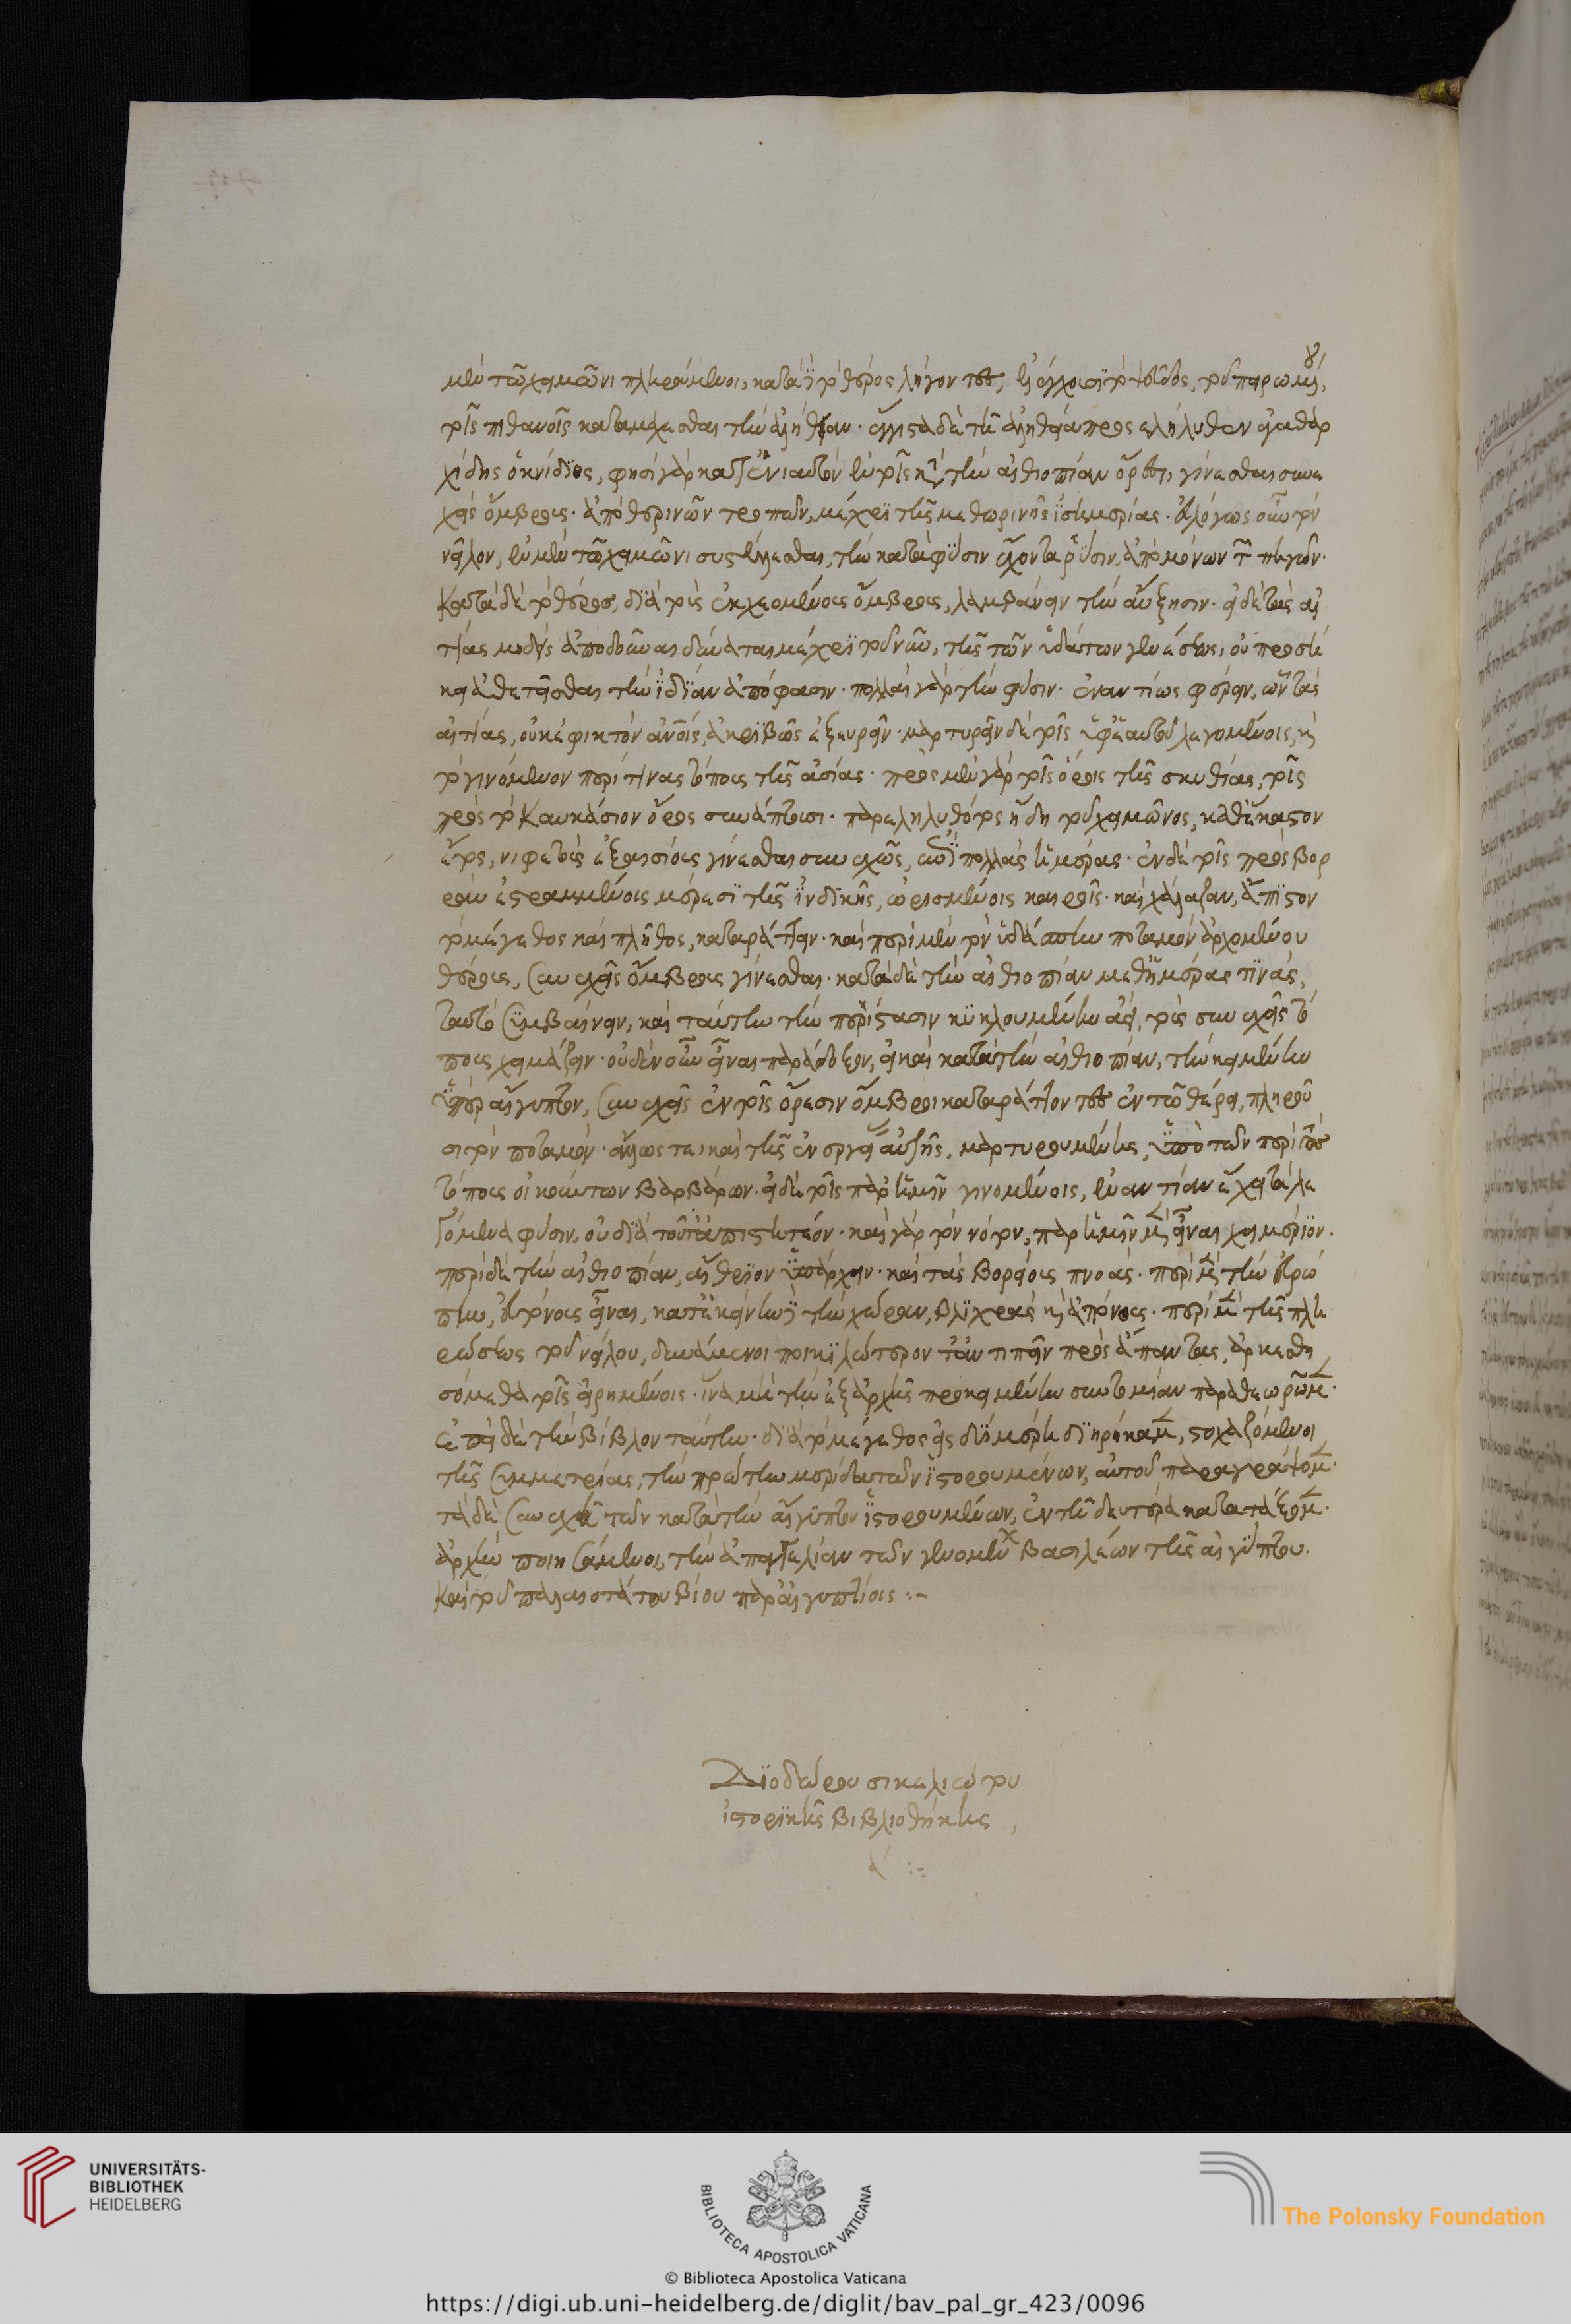 μὲν τῶ χειμῶνι πληρούμενοι, κατὰ δὲ τὸ θέρος λήγοντες, ἐλέγχουσϊ τὸ ψεῦδος, τοῦ πειρωμένου
τοῖς πιθανοῖς καταμάχεσθαι τὴν ἀλήθειαν· ἔγγιστα δὲ τῆ ἀληθεία προσελήλυθεν ἀγαθαρ
χίδης ὁ κνίδϊος, φησὶ γὰρ κατ' ἐνιαυτὸν ἐν τοῖς κατὰ τὴν αἰθιοπίαν ὄρεσι, γίνεσθαι συνε
χεῖς ὄμβρους· ἀπὸ θερινῶν τροπῶν, μέχρϊ τῆς μεθωρινῆς ἰσημερίας· εὐλόγως οὖν τὸν
νεῖλον, ἐν μὲν τῶ χειμῶνι συστέλλεσθαι, τὴν κατὰ φύσιν ἔχοντα ῥύσιν, ἀπὸ μόνων τῶν πηγῶν·
κατὰ δὲ τὸ θέρος, δϊὰ τοὺς ἐκχεομένους ὄμβρους, λαμβάνειν τὴν αὔξησιν· εἰ δὲ τὰς αἰ
τίας μηδεὶς ἀποδοῦναι δύναται μέχρϊ τοῦ νῦν, τῆς τῶν ὑδάτων γενέσεως, οὐ προσή
κει ἀθετεῖσθαι τὴν ἰδίαν ἀπόφασιν· πολλὰ γὰρ τὴν φύσιν· ἐναντίως φέρειν, ὧν τὰς
αἰτίας, οὐκ ἐφικτὸν ἀνοις, ἀκριβῶς ἐξευρεῖν· μαρτυρεῖν δὲ τοῖς ὑφ' ἑαυτοῦ λεγομένοις, καὶ
τὸ γινόμενον περί τινας τόπους τῆς ἀσίας· πρὸς μὲν γὰρ τοῖς ὅροις τῆς σκυθίας, τοῖς
πρὸς τὸ καυκάσιον ὄρος συνάπτουσι· παρεληλυθότος ἤδη τοῦ χειμῶνος, καθ' ἕκαστον
ἔτος, νιφετοὺς ἐξαισίους γίνεσθαι συνεχῶς, ἐπὶ πολλὰς ἡμέρας· ἐν δὲ τοῖς πρὸς βορ
ρᾶν ἐστραμμένοις μέρεσϊ τῆς ἰνδικῆς, ὡρισμένοις καιροῖς· καὶ χάλαζαν, ἄπιστον
τὸ μέγεθος καὶ πλῆθος, καταράττειν· καὶ περὶ μὲν τὸν ὑδάσπην ποταμὸν ἀρχομένου
θέρους, συνεχεῖς ὄμβρους γίνεσθαι· κατὰ δὲ τὴν αἰθιοπίαν μεθ' ἡμέρας τινὰς,
ταυτὸ συμβαίνειν, καὶ ταύτην τὴν περίστασιν κυκλουμένην ἀεὶ, τοὺς συνεχεῖς τό
πους χειμάζειν· οὐδὲν οὖν εἶναι παράδοξον, εἰ καὶ κατὰ τὴν αἰθιοπίαν, τὴν κειμένην
ὑπὲρ αἴγυπτον, συνεχεῖς ἐν τοῖς ὄρεσιν ὄμβροι καταράττοντες ἐν τῶ θέρει, πληροῦ
σι τὸν ποταμόν· ἄλλως τε καὶ τῆς ἐναργείας αὐτῆς, μαρτυρουμένης, ὑπὸ τῶν περὶ τοὺς
τόπους οἰκούντων βαρβάρων· εἰ δὲ τοῖς παρ' ἡμῖν γινομένοις, ἐναντίαν ἔχει τὰ λε
γόμενα φύσιν, οὐ διὰ τοῦτ' ἀπιστητέον· καὶ γὰρ τὸν νότον, παρ' ἡμῖν μὲν εἶναι χειμέριον·
περὶ δὲ τὴν αἰθιοπίαν, αἴθριον ὑπάρχειν· καὶ τὰς βορείους πνοὰς· περὶ μὲν τὴν εὐρώ
πην, εὐτόνους εἶναι, κατ' ἐκείνην δὲ τὴν χώραν, βληχρὰς καὶ ἀτόνους· περὶ μὲν τῆς πλη
ρώσεως τοῦ νείλου, δυνάμενοι ποικιλώτερον ἀντειπεῖν πρὸς ἅπαντας, ἀρκεσθη
σόμεθα τοῖς εἰρημένοις· ἵνα μὴ τὴν ἐξ ἀρχῆς προκειμένην συντομίαν παραθεωρῶμεν·
ἐπεὶ δὲ τὴν βίβλον ταύτην· δϊὰ τὸ μέγεθος εἰς δύο μέρη διηρήκαμεν, στοχαζόμενοι
τῆς συμμετρίας, τὴν πρώτην μερίδα τῶν ἱστορουμένων, αὐτοῦ παραγράψομεν·
τὰ δὲ συνεχῆ τῶν κατὰ τὴν αἴγυπτον ἱστορουμένων, ἐν τῆ δευτέρα κατατάξομεν·
ἀρχὴν ποιησάμενοι, τὴν ἀπαγγελίαν τῶν γενομένων βασιλέων τῆς αἰγύπτου·
καὶ τοῦ παλαιοτάτου βίου παρ' αἰγυπτίοις :–
Δϊοδώρου σικελιώτου
ἱστορϊκῆς βιβλιοθήκης
α΄ :–
UNIVERSITÄTS-
BIBLIOTHEK
HEIDELBERG
BIBLIOTECA APOSTOLICA VATICANA
The Polonsky Foundation
© Biblioteca Apostolica Vaticana
https://digi.ub.uni-heidelberg.de/diglit/bav_pal_gr_423/0096